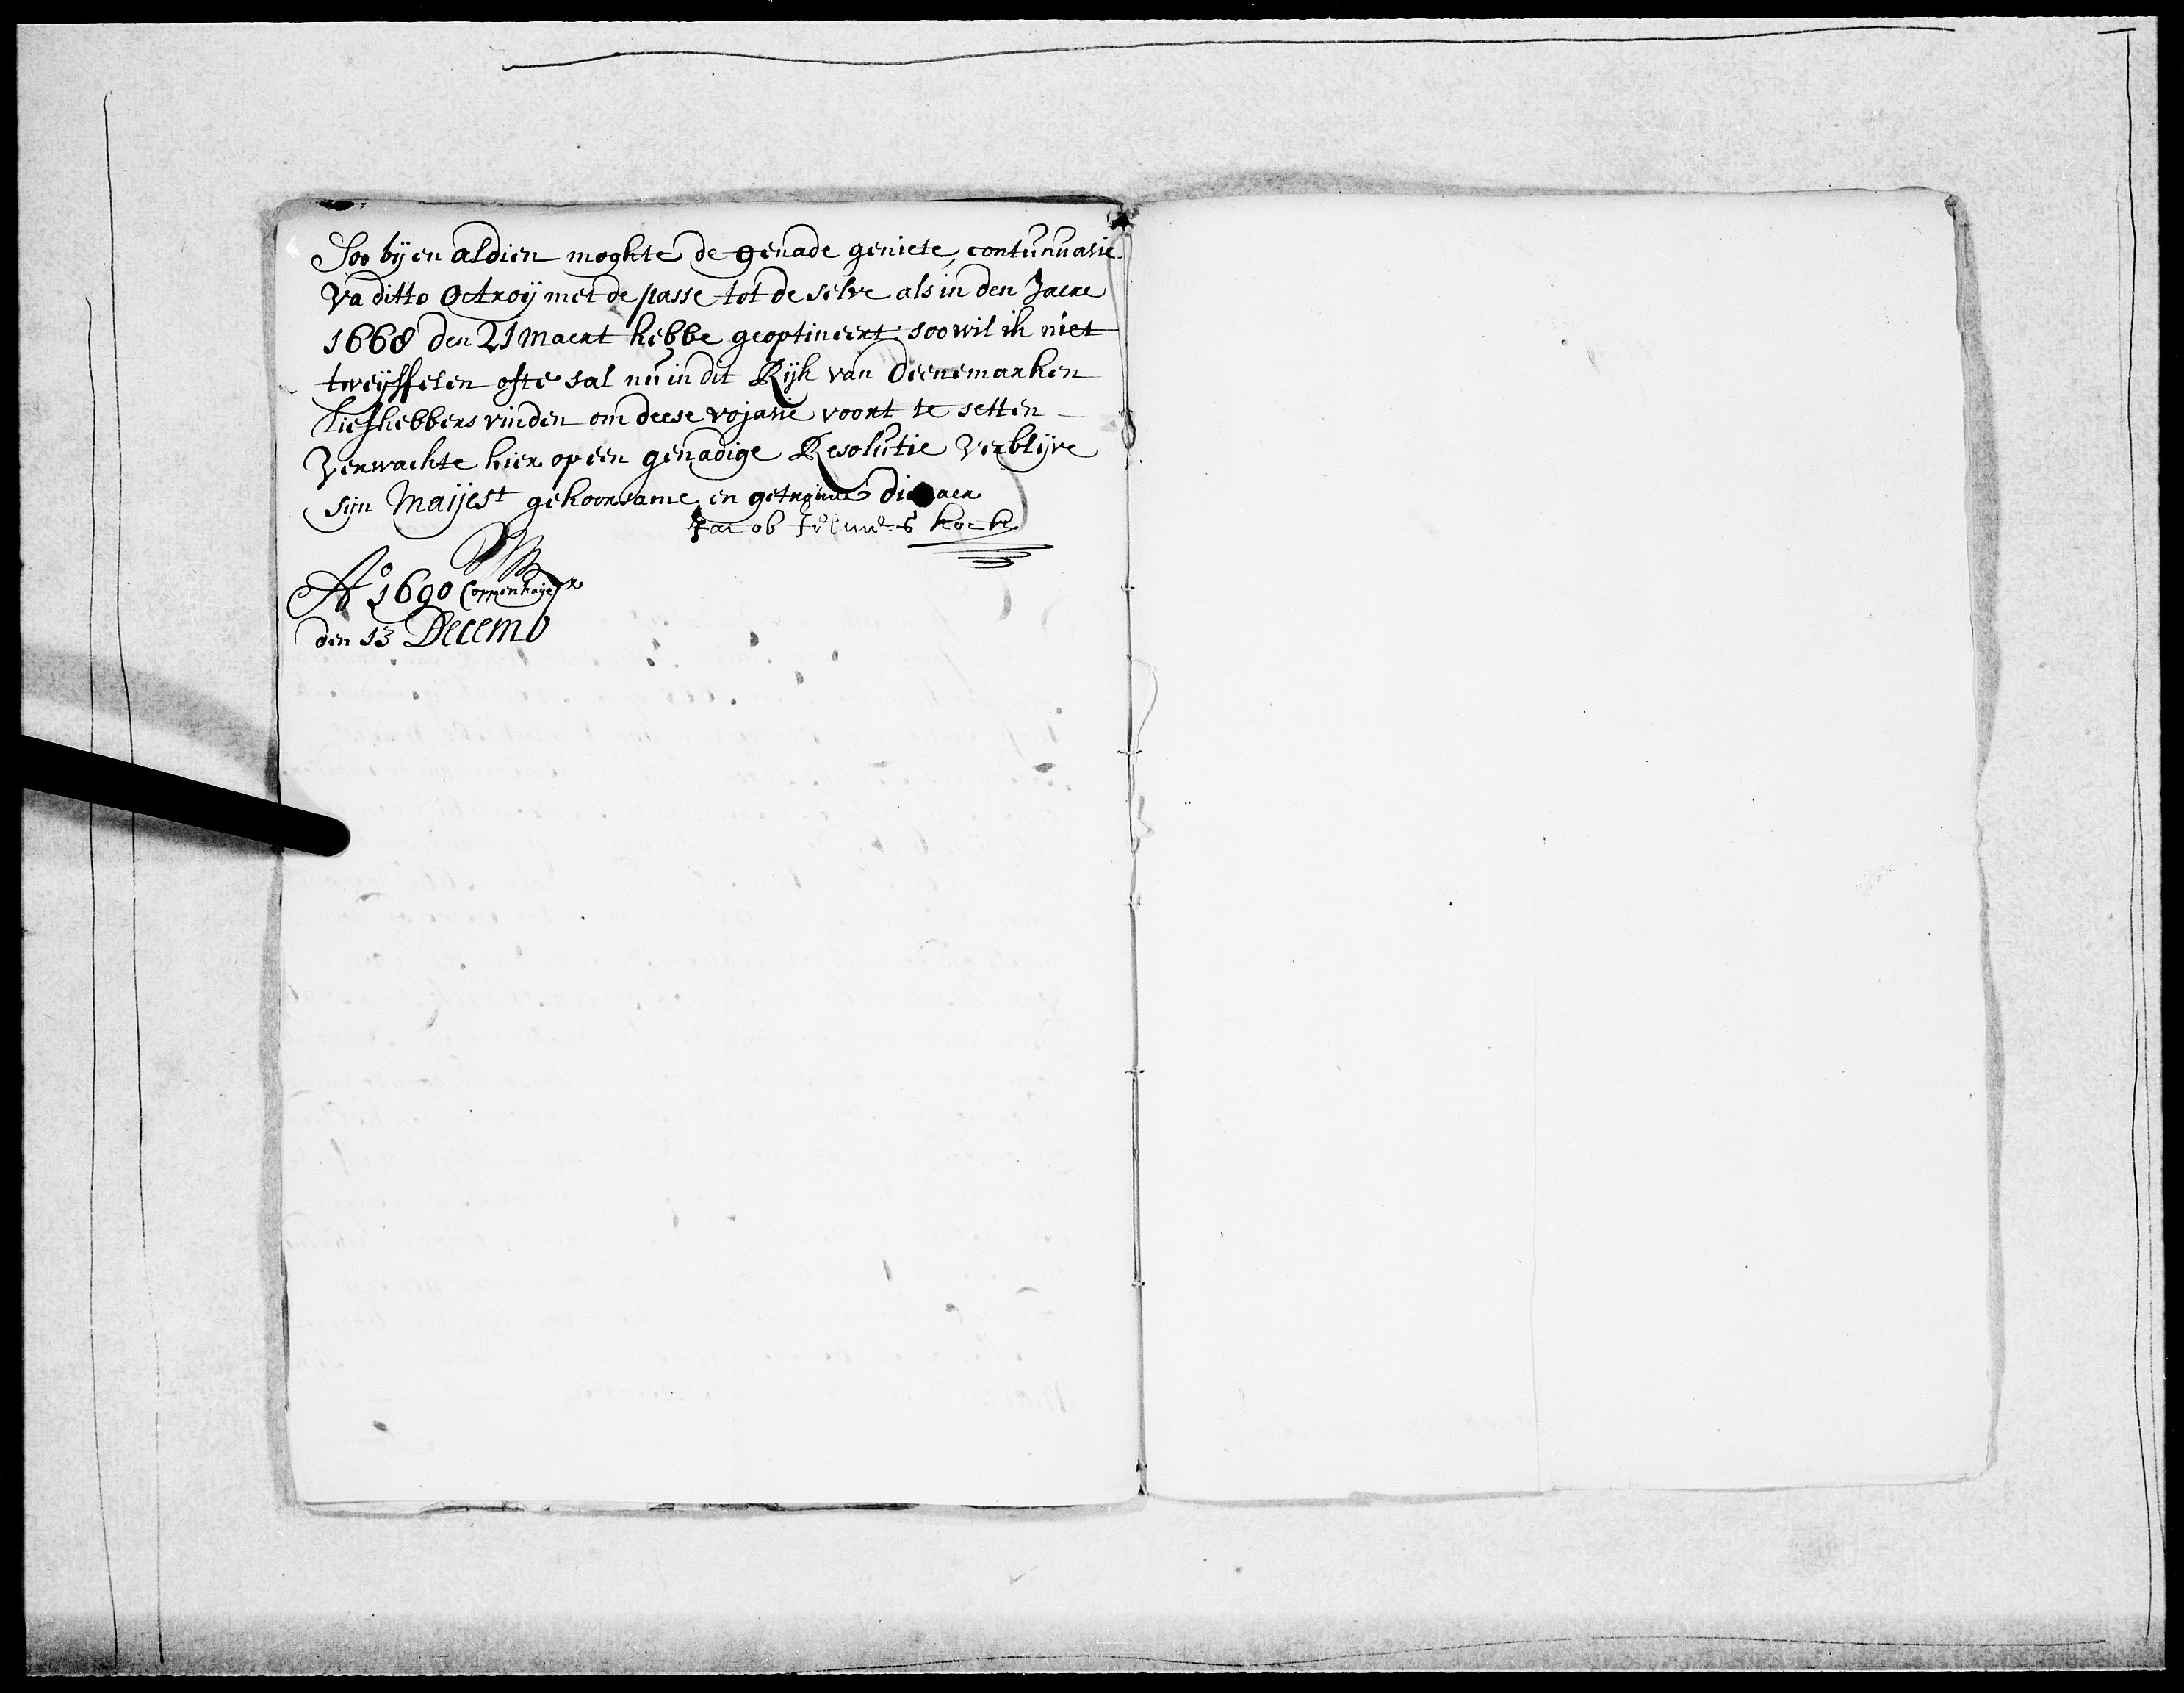 Soo bij en aldien moghte de genade geniete, contunuasie
Va ditto Octroij met de passe tot de selve als in den Jaere
1668 den 21 Maert hebbe geoptineert soo wil ik niet
tweijffelen ofte sal nu in dit Rijk van Deenemarken
Liefhebbers vinden om deese vojasie voort te setten
Verwachte hier op een genadige Resolutie Verblijve
sijn Maijest gehoorsame en getrouwe dienaer
Jacob kock
Ao 1690 Coppenhagen
den 13 Decemb